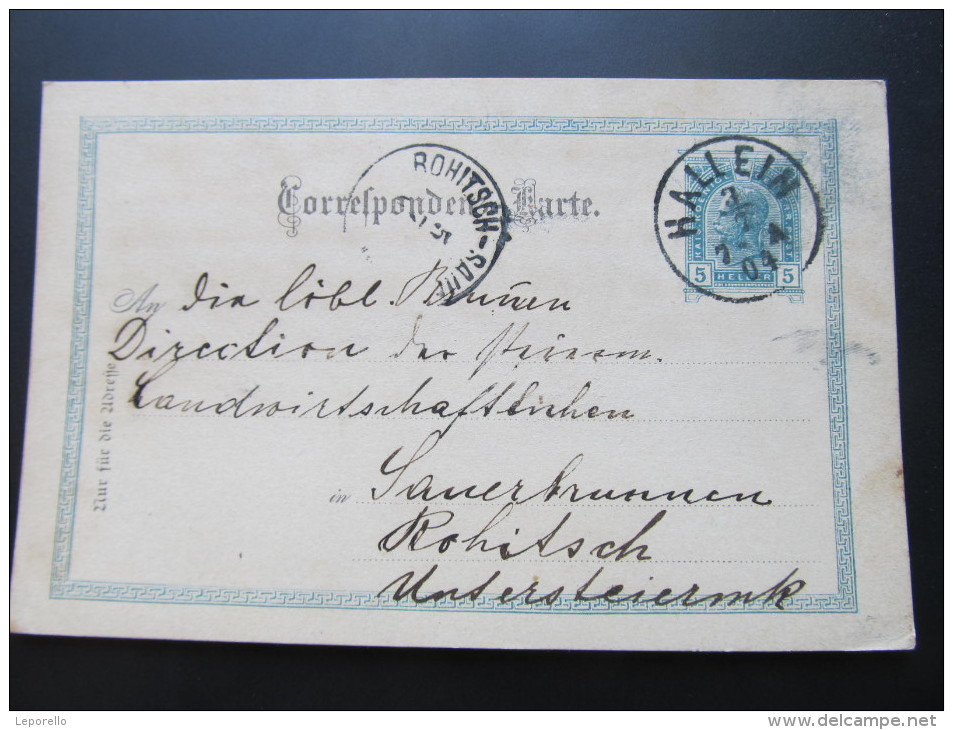 Correspondenz-Karte.
ROHITSCH-SAU
HALLEIN
04
5 HELLER 5
An die löbl. Brunnen
Direction der
Landwirtschaftlichen
in Sauerbrunnen
Rohitsch
Untersteiermk
Nur für die Adresse
Leporello
www.delcampe.net